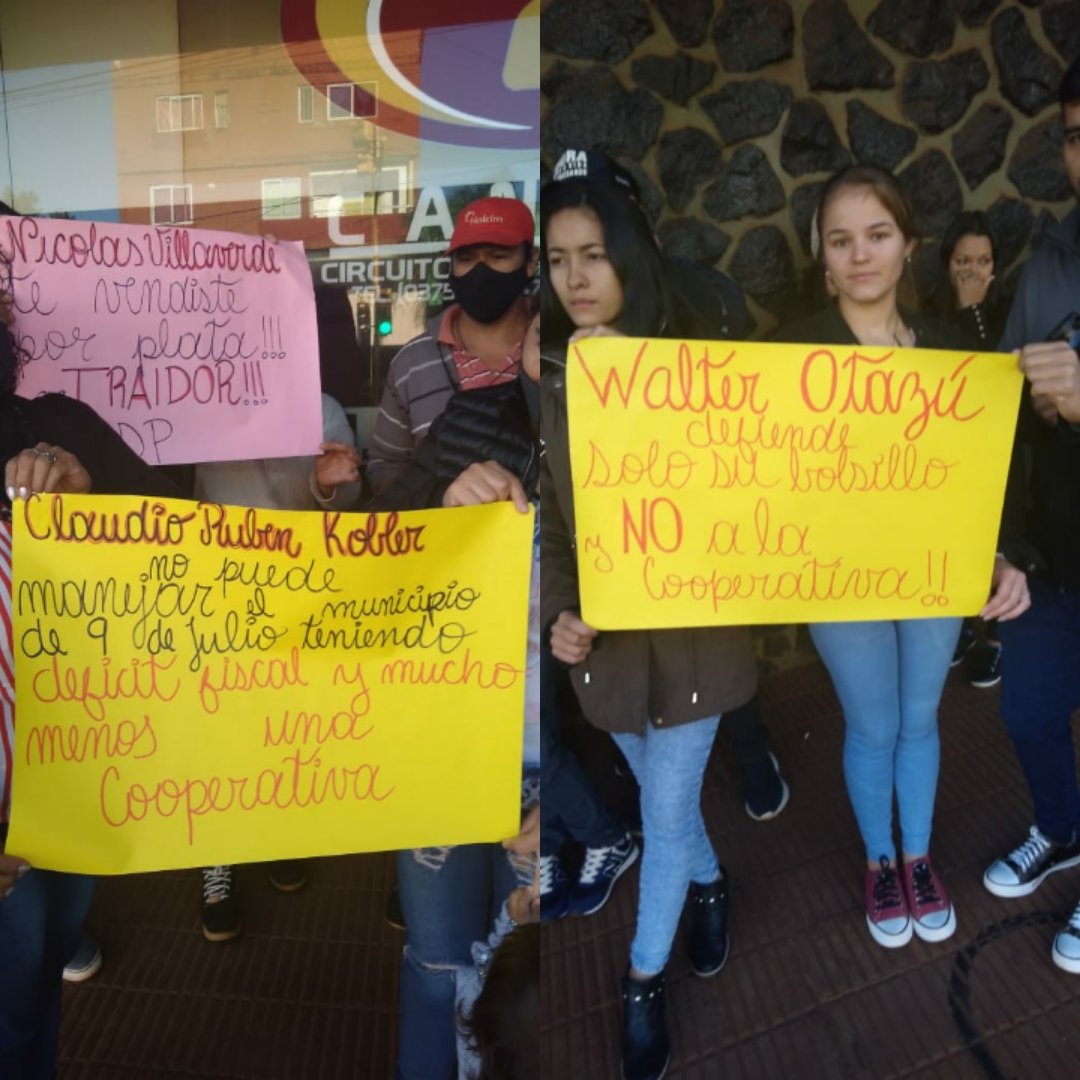 Nicolas Villaverde
te vendiste
por plata!!!
TRAIDOR!!!
Claudio Ruben Kobler
no puede
manejar el municipio
de 9 de Julio teniendo
deficit fiscal y mucho
menos una
Cooperativa
CIRCUITO
Holcim
Walter Otazú
defiende
solo su bolsillo
y NO a la
Cooperativa!!